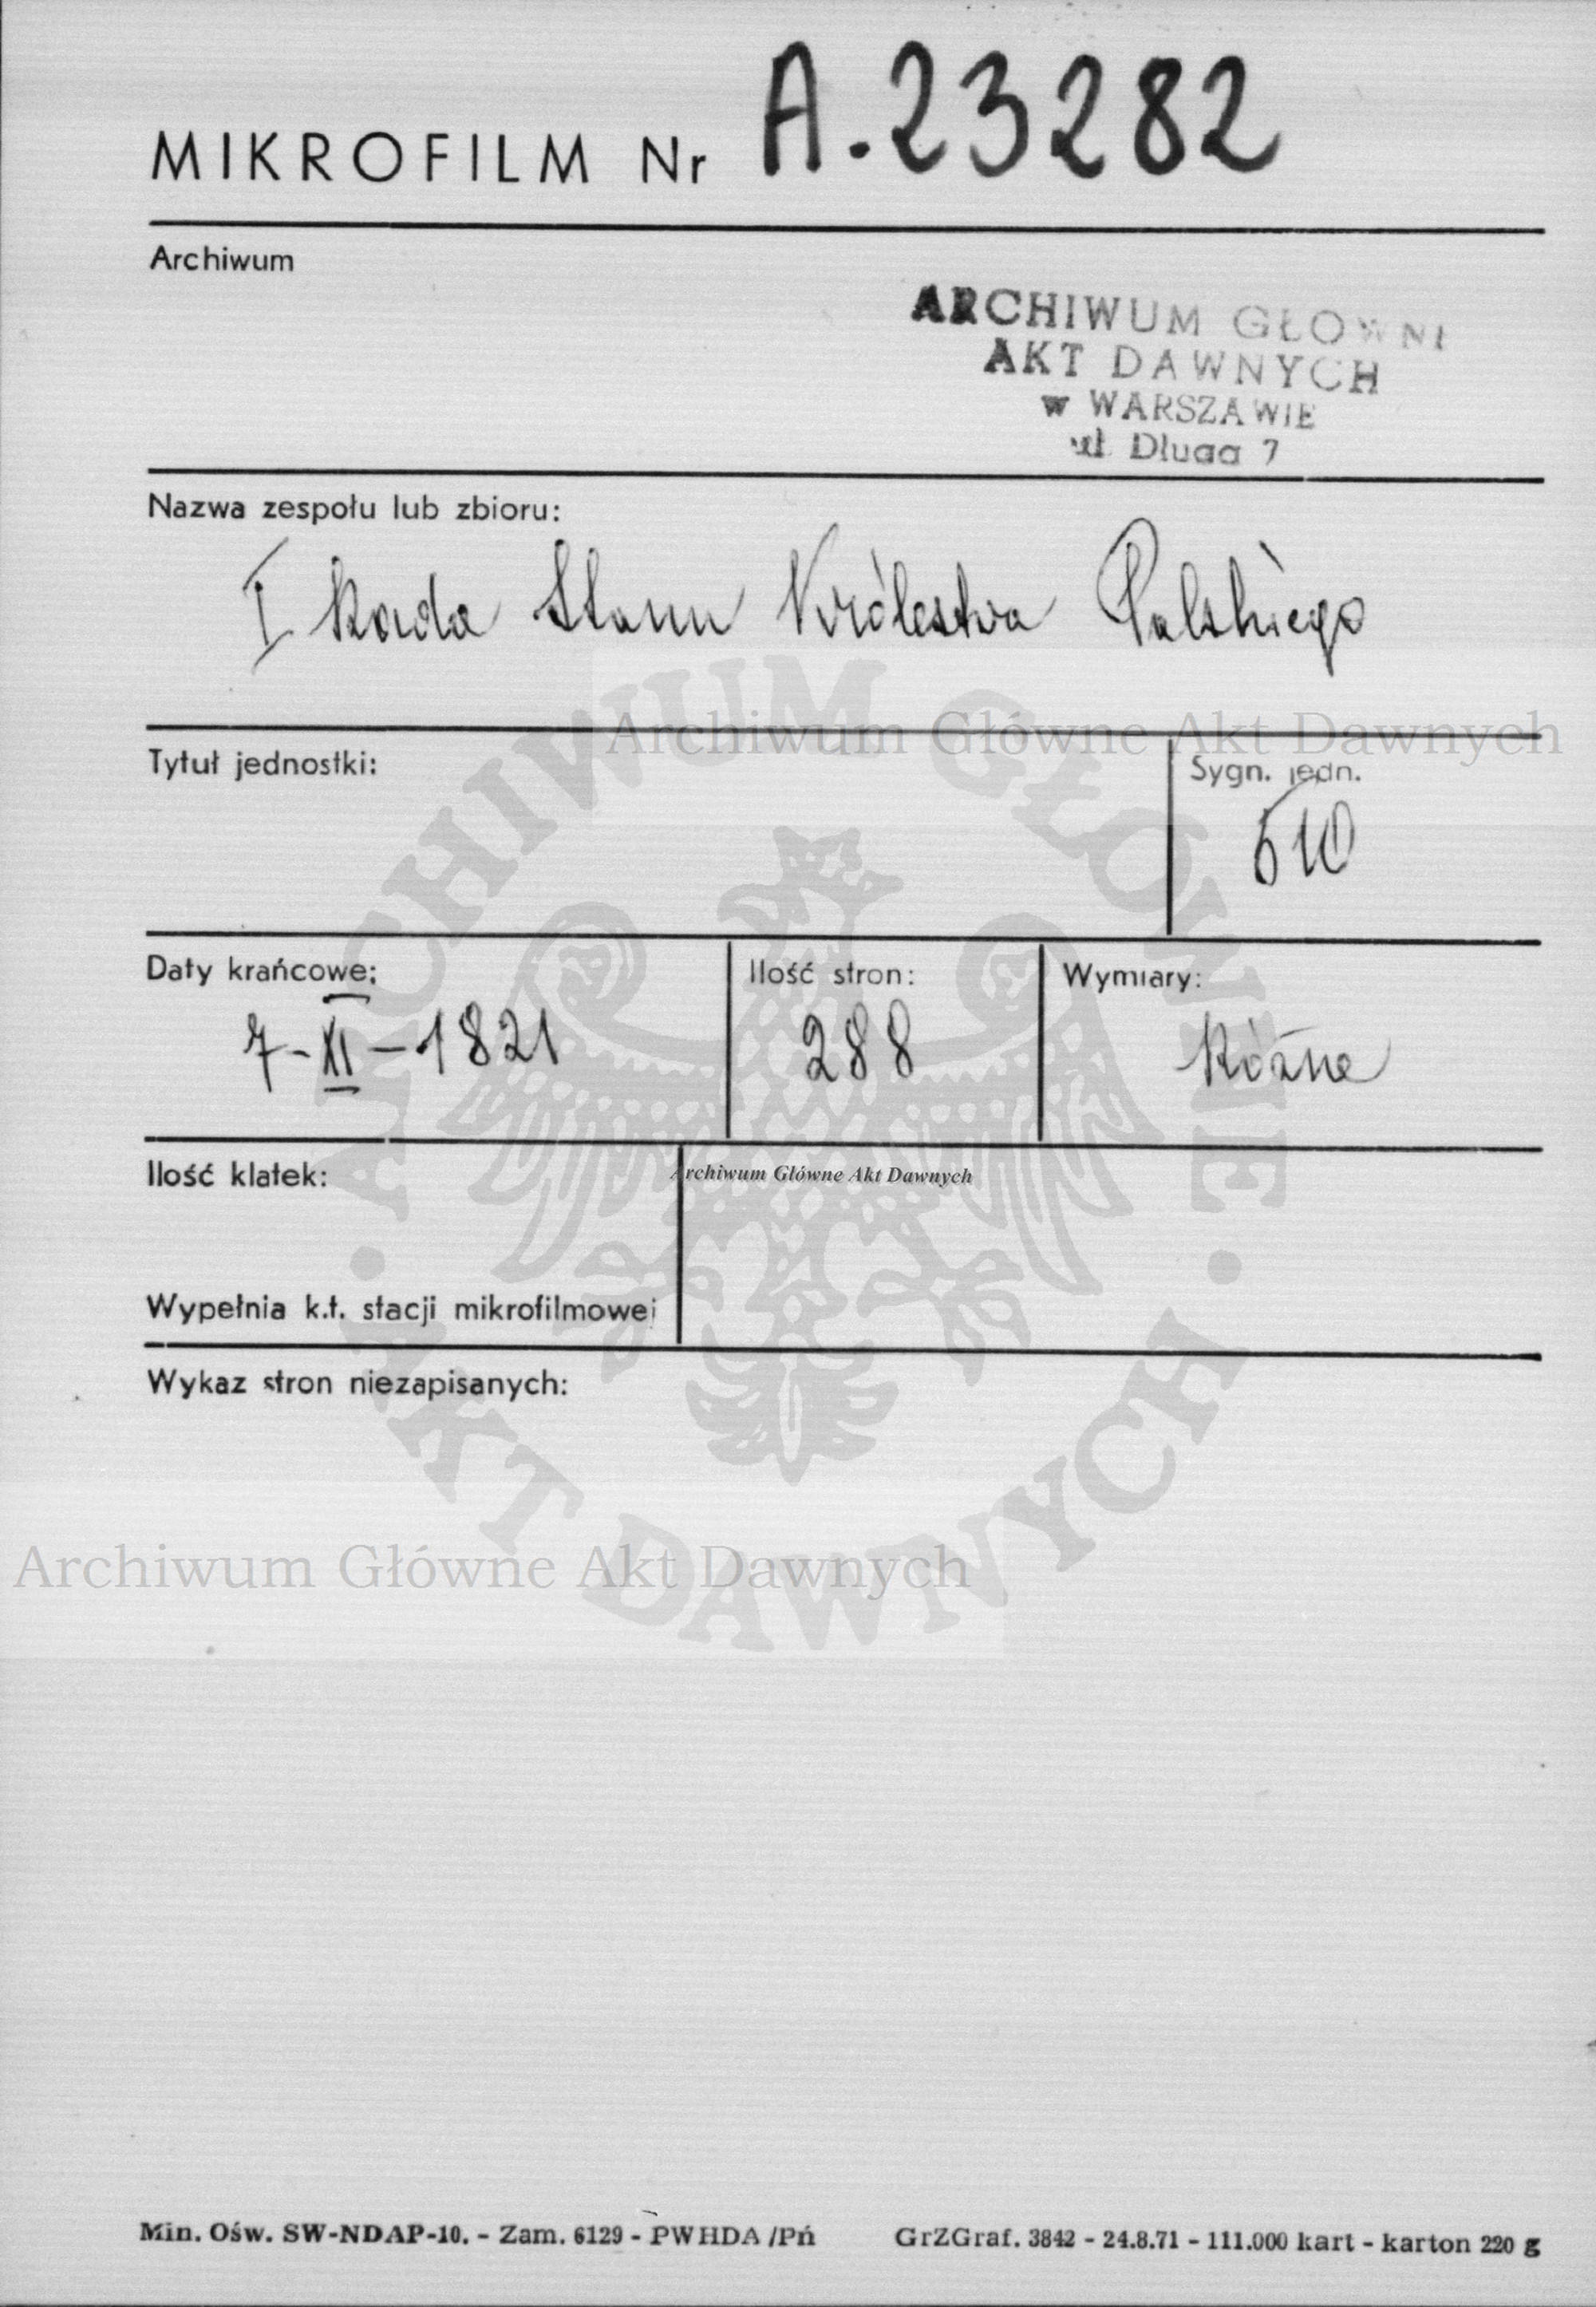 MIKROFILM Nr A.23282
Archiwum
ARCHIWUM GŁOWNE
AKT DAWNYCH
w WARSZAWIE
ul. Dluga 7
Nazwa zespołu lub zbioru:
I Rada Stanu Królestwa Polskiego
Archiwum Główne Akt Dawnych
Tytuł jednostki:
Sygn. jedn.
610
Daty krańcowe:
7-XI-1821
Ilość stron:
288
Wymiary:
Różne
Ilość klatek:
Archiwum Główne Akt Dawnych
Wypełnia k.t. stacji mikrofilmowej
Wykaz stron niezapisanych:
ARCHIWUM GŁÓWNE
AKT DAWNYCH
Archiwum Główne Akt Dawnych
Min. Ośw. SW-NDAP-10. - Zam. 6129 - PWHDA /Pń GrZGraf. 3842 - 24.8.71 - 111.000 kart - karton 220 g